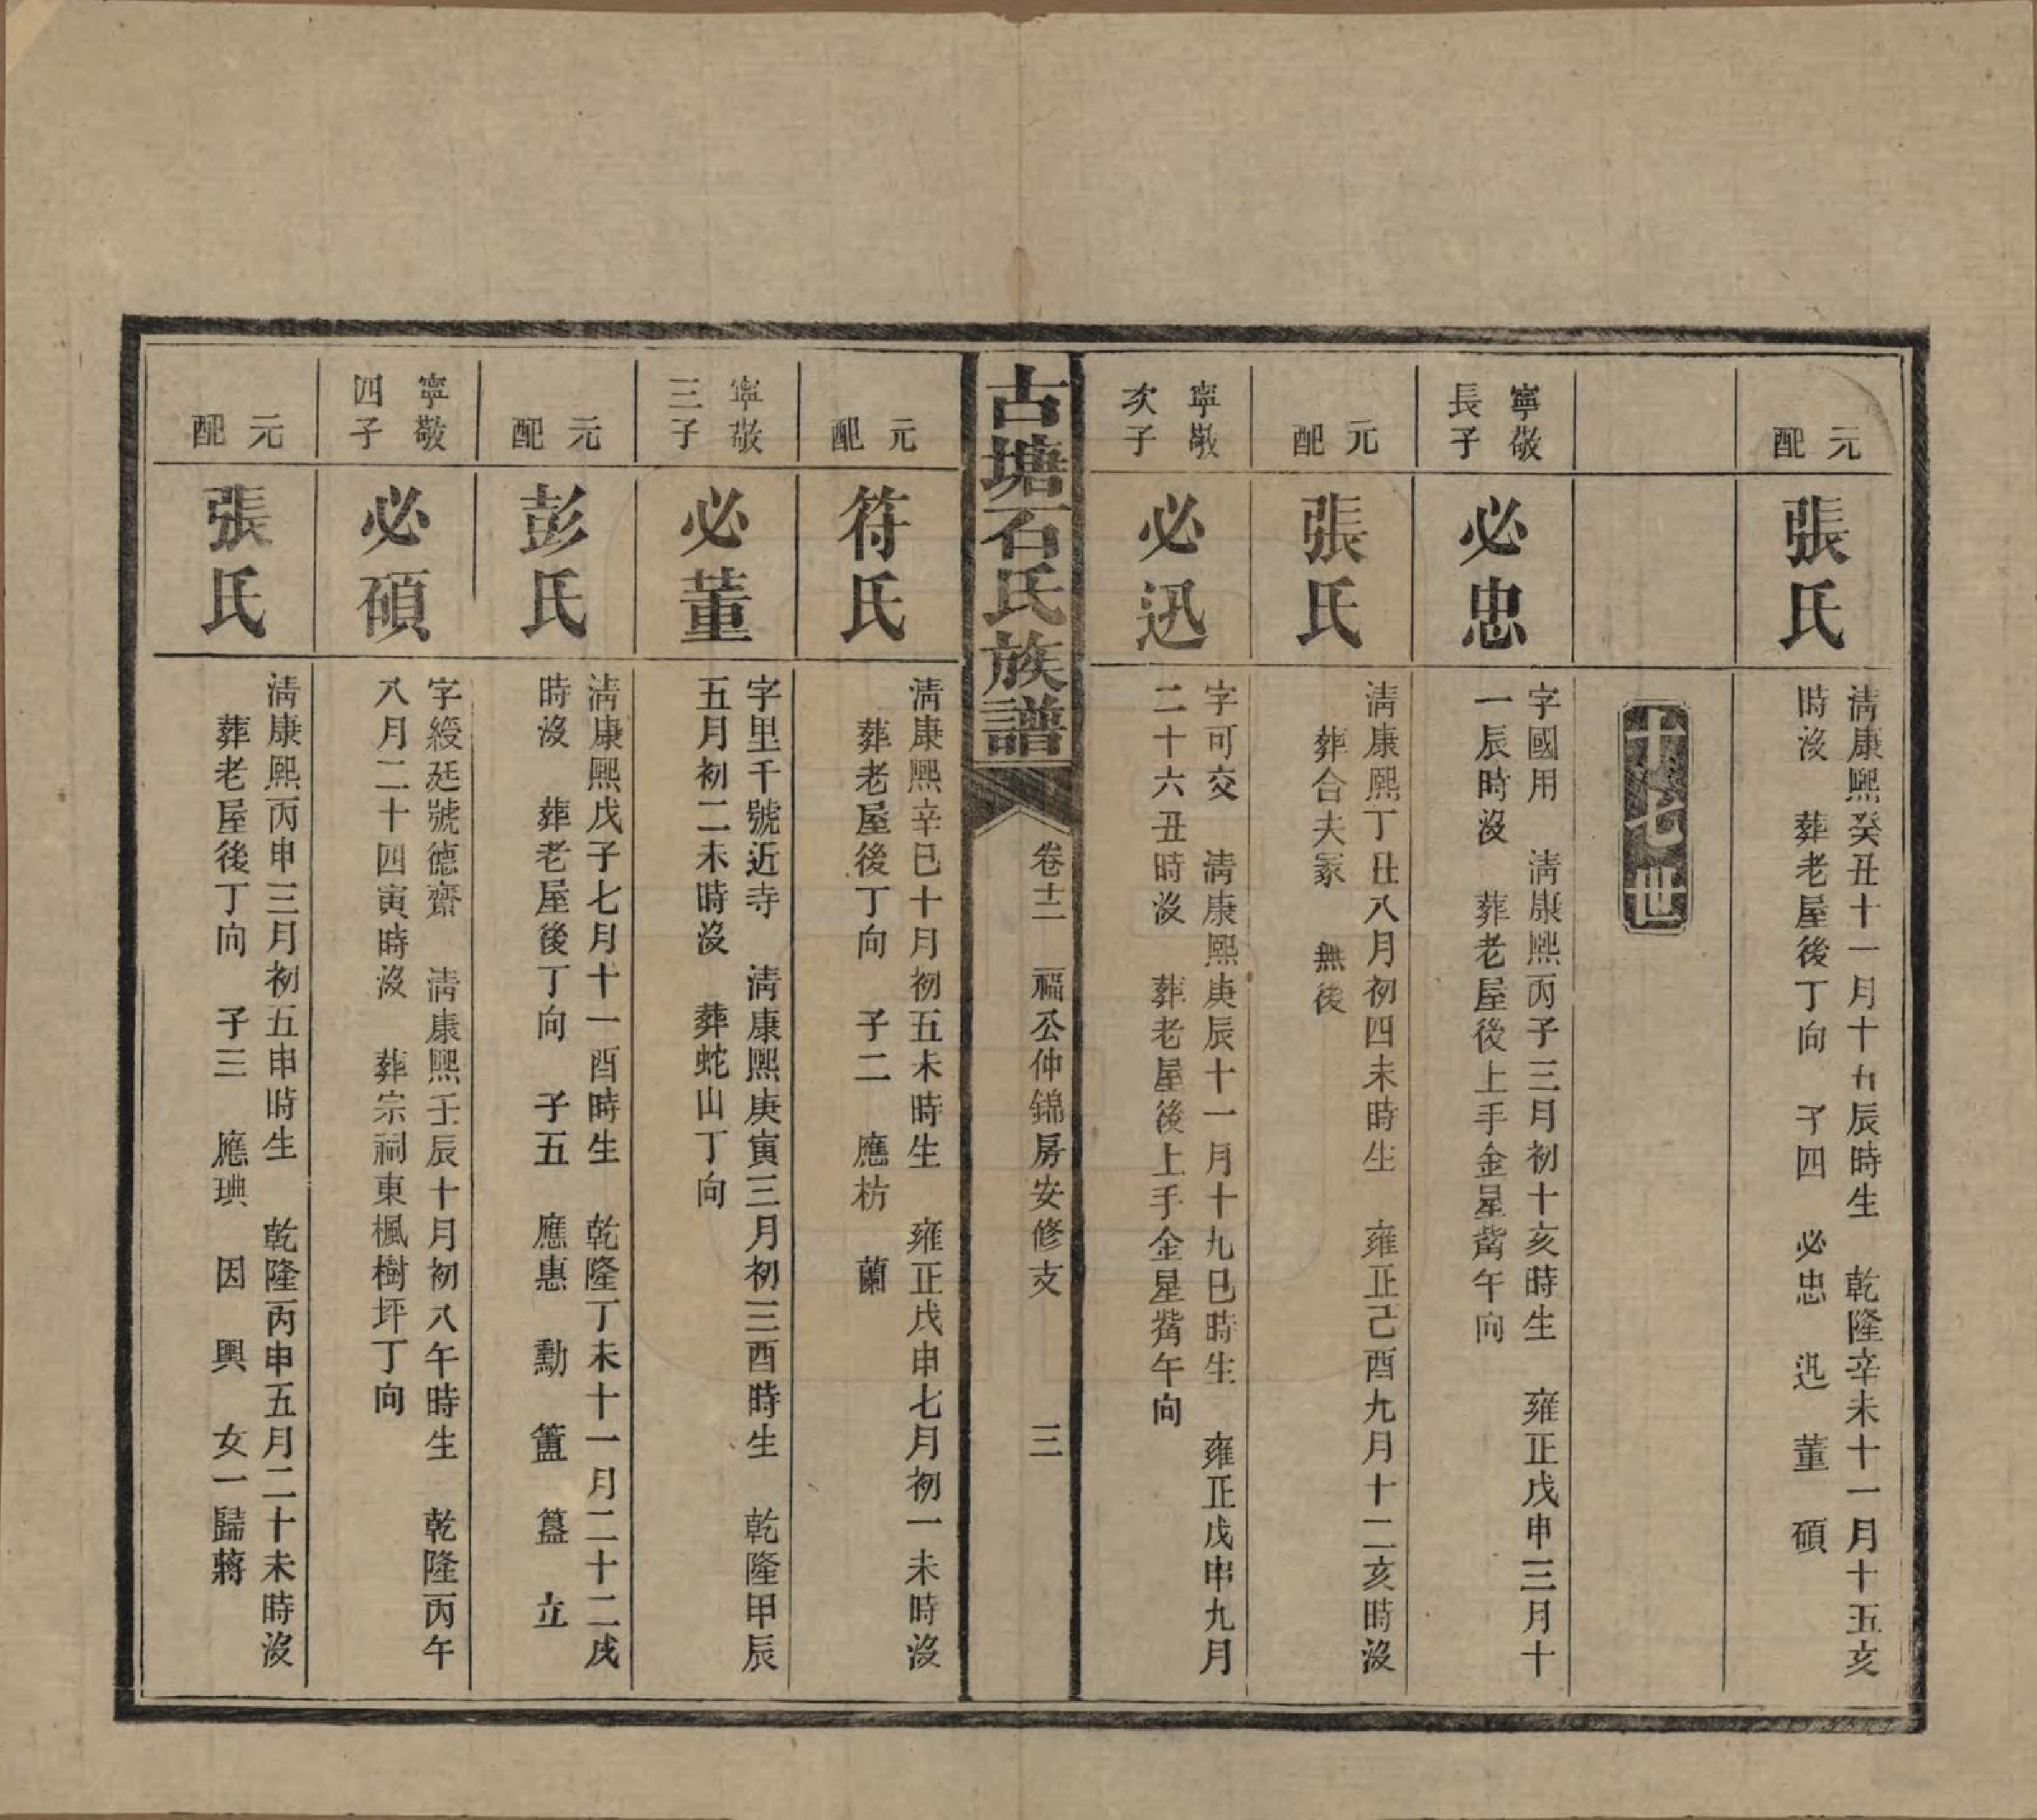 元配
張氏
淸康熙癸丑十一月十五辰時生　乾隆辛未十一月十五亥
時沒　葬老屋後丁向　子四　必忠　迅　董　碩
十七世
寧敬長子
必忠
字國用　淸康熙丙子三月初十亥時生　雍正戊申三月十
一辰時沒　葬老屋後上手金星觜午向
元配
張氏
淸康熙丁丑八月初四未時生　雍正己酉九月十二亥時沒
葬合夫冢　無後
寧敬次子
必迅
字可交　淸康熙庚辰十一月十九巳時生　雍正戊申九月
二十六丑時沒　葬老屋後上手金星觜午向
古塘石氏族譜
卷十二　福公仲錦房安修支　三
元配
符氏
淸康熙辛巳十月初五未時生　雍正戊申七月初一未時沒
葬老屋後丁向　子二　應枋　蘭
寧敬三子
必董
字里千號近寺　淸康熙庚寅三月初三酉時生　乾隆甲辰
五月初二未時沒　葬蛇山丁向
元配
彭氏
淸康熙戊子七月十一酉時生　乾隆丁未十一月二十二戌
時沒　葬老屋後丁向　子五　應惠　勳　簠　簋　立
寧敬四子
必碩
字綬廷號德齋　淸康熙壬辰十月初八午時生　乾隆丙午
八月二十四寅時沒　葬宗祠東楓樹坪丁向
元配
張氏
淸康熙丙申三月初五申時生　乾隆丙申五月二十未時沒
葬老屋後丁向　子三　應琠　因　興　女一歸蔣